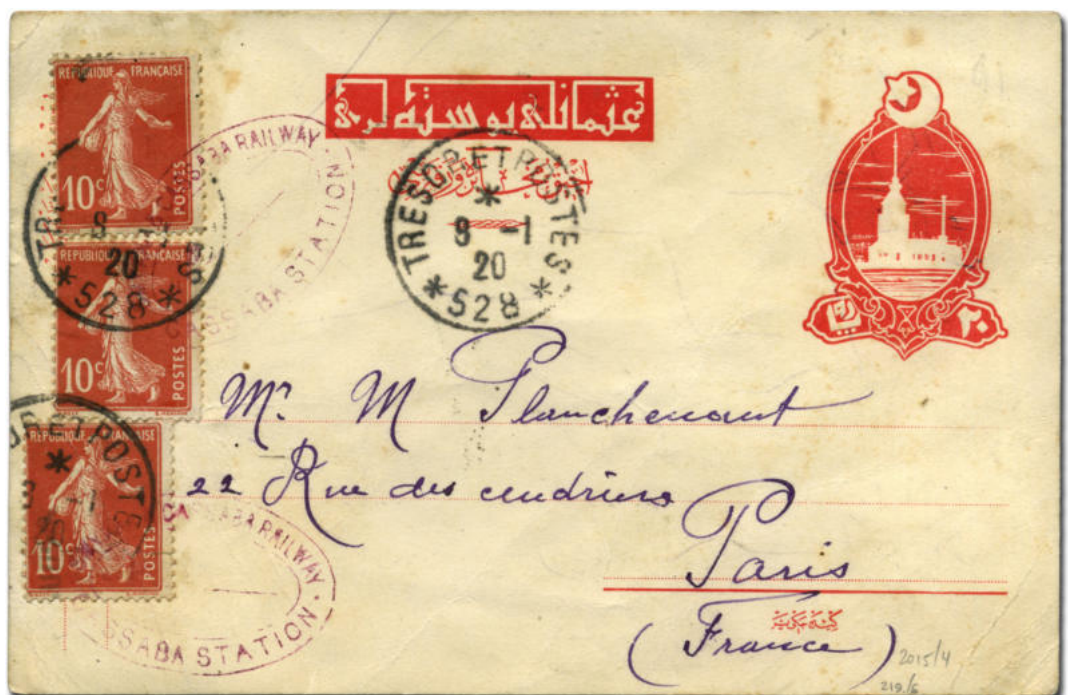 REPUBLIQUE FRANÇAISE
10c POSTES
REPUBLIQUE FRANÇAISE
10c POSTES
REPUBLIQUE FRANÇAISE
10c POSTES
عثمانلی پوسته لری
SABA RAILWAY
CASSABA STATION
TRESOR ET POSTES
* 528 *
20
TRESOR ET POSTES
9 -1
20
* 528 *
٢٠
پاره
Mr. M Planchenault
22 Rue des cendriers
Paris
(France)
ORETPOSTE
20
CASSABA RAILWAY
CASSABA STATION
2015/4
219/6